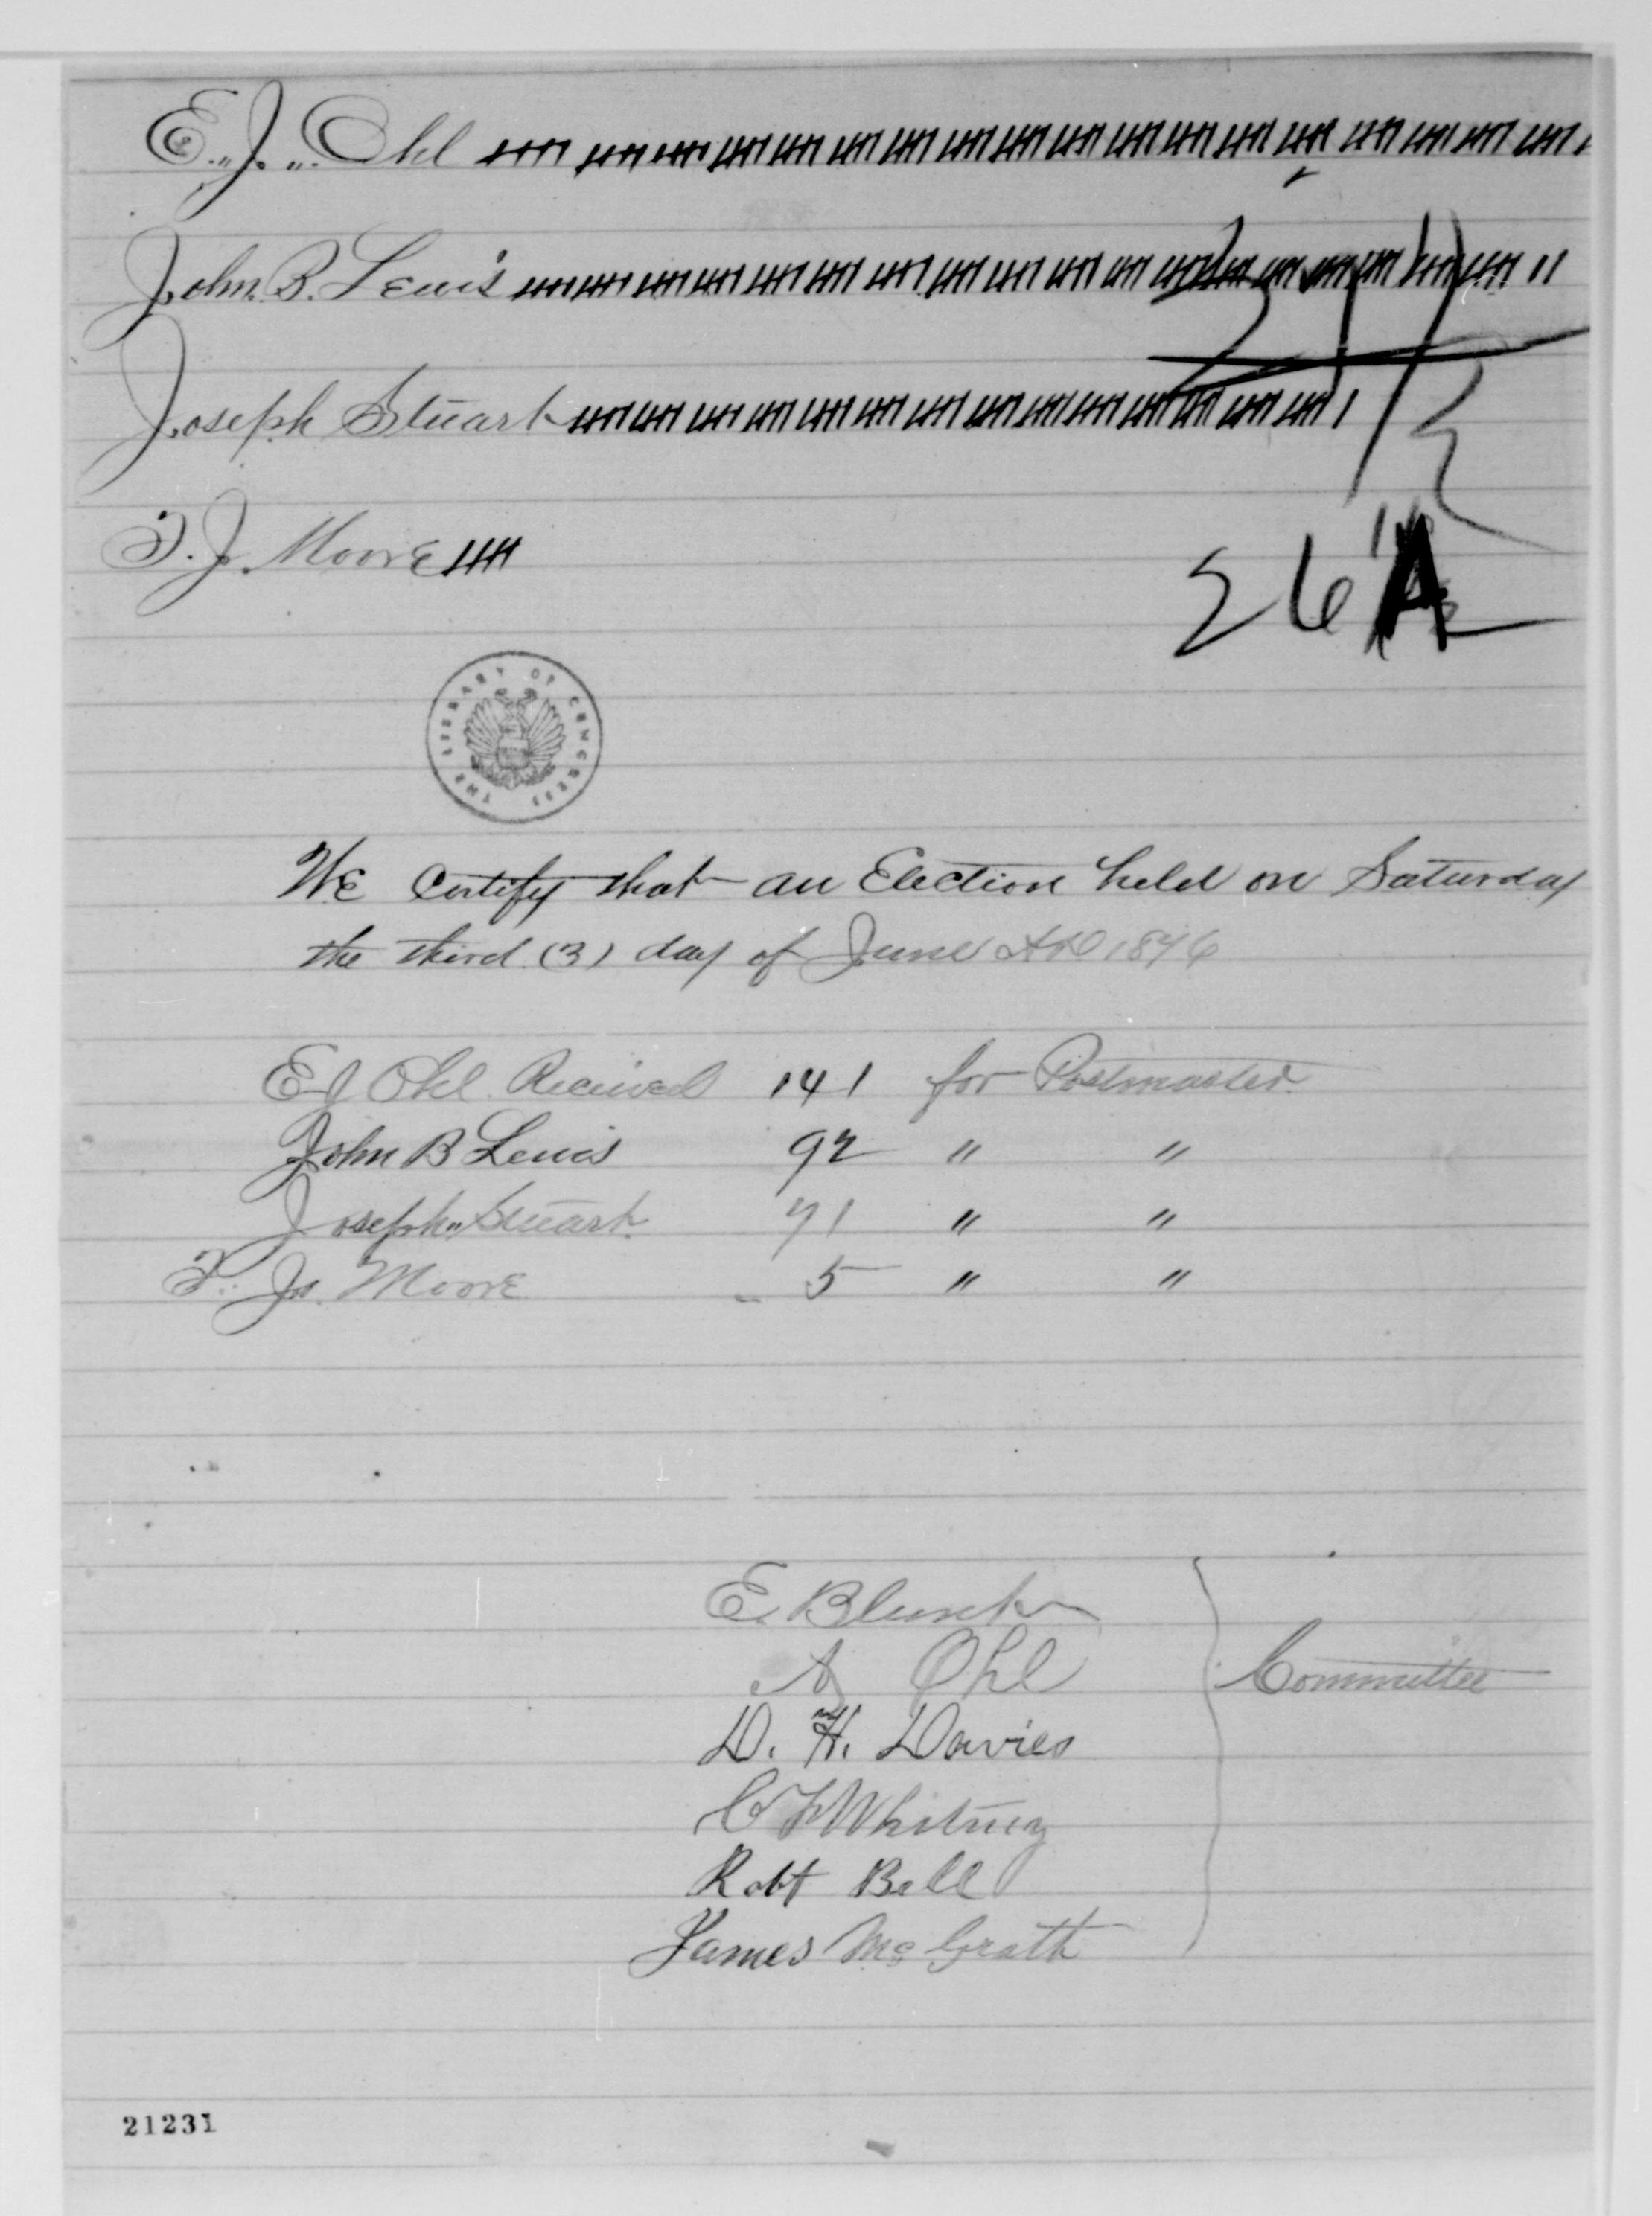 E. J. Ohl
John. B. Lewis
Joseph Stuart
T. J. Moore
26 A
THE LIBRARY OF CONGRESS
We Certify that an Election held on Saturday
the third (3) day of June AD 1876
E J Ohl Received 141 for Postmaster
John B Lewis 92 " "
Joseph Stuart 71 " "
T. J. Moore 5 " "
E. Blunk
A Ohl
Committee
D. H. Davies
C F Whitney
Robt Bell
James McGrath
21231